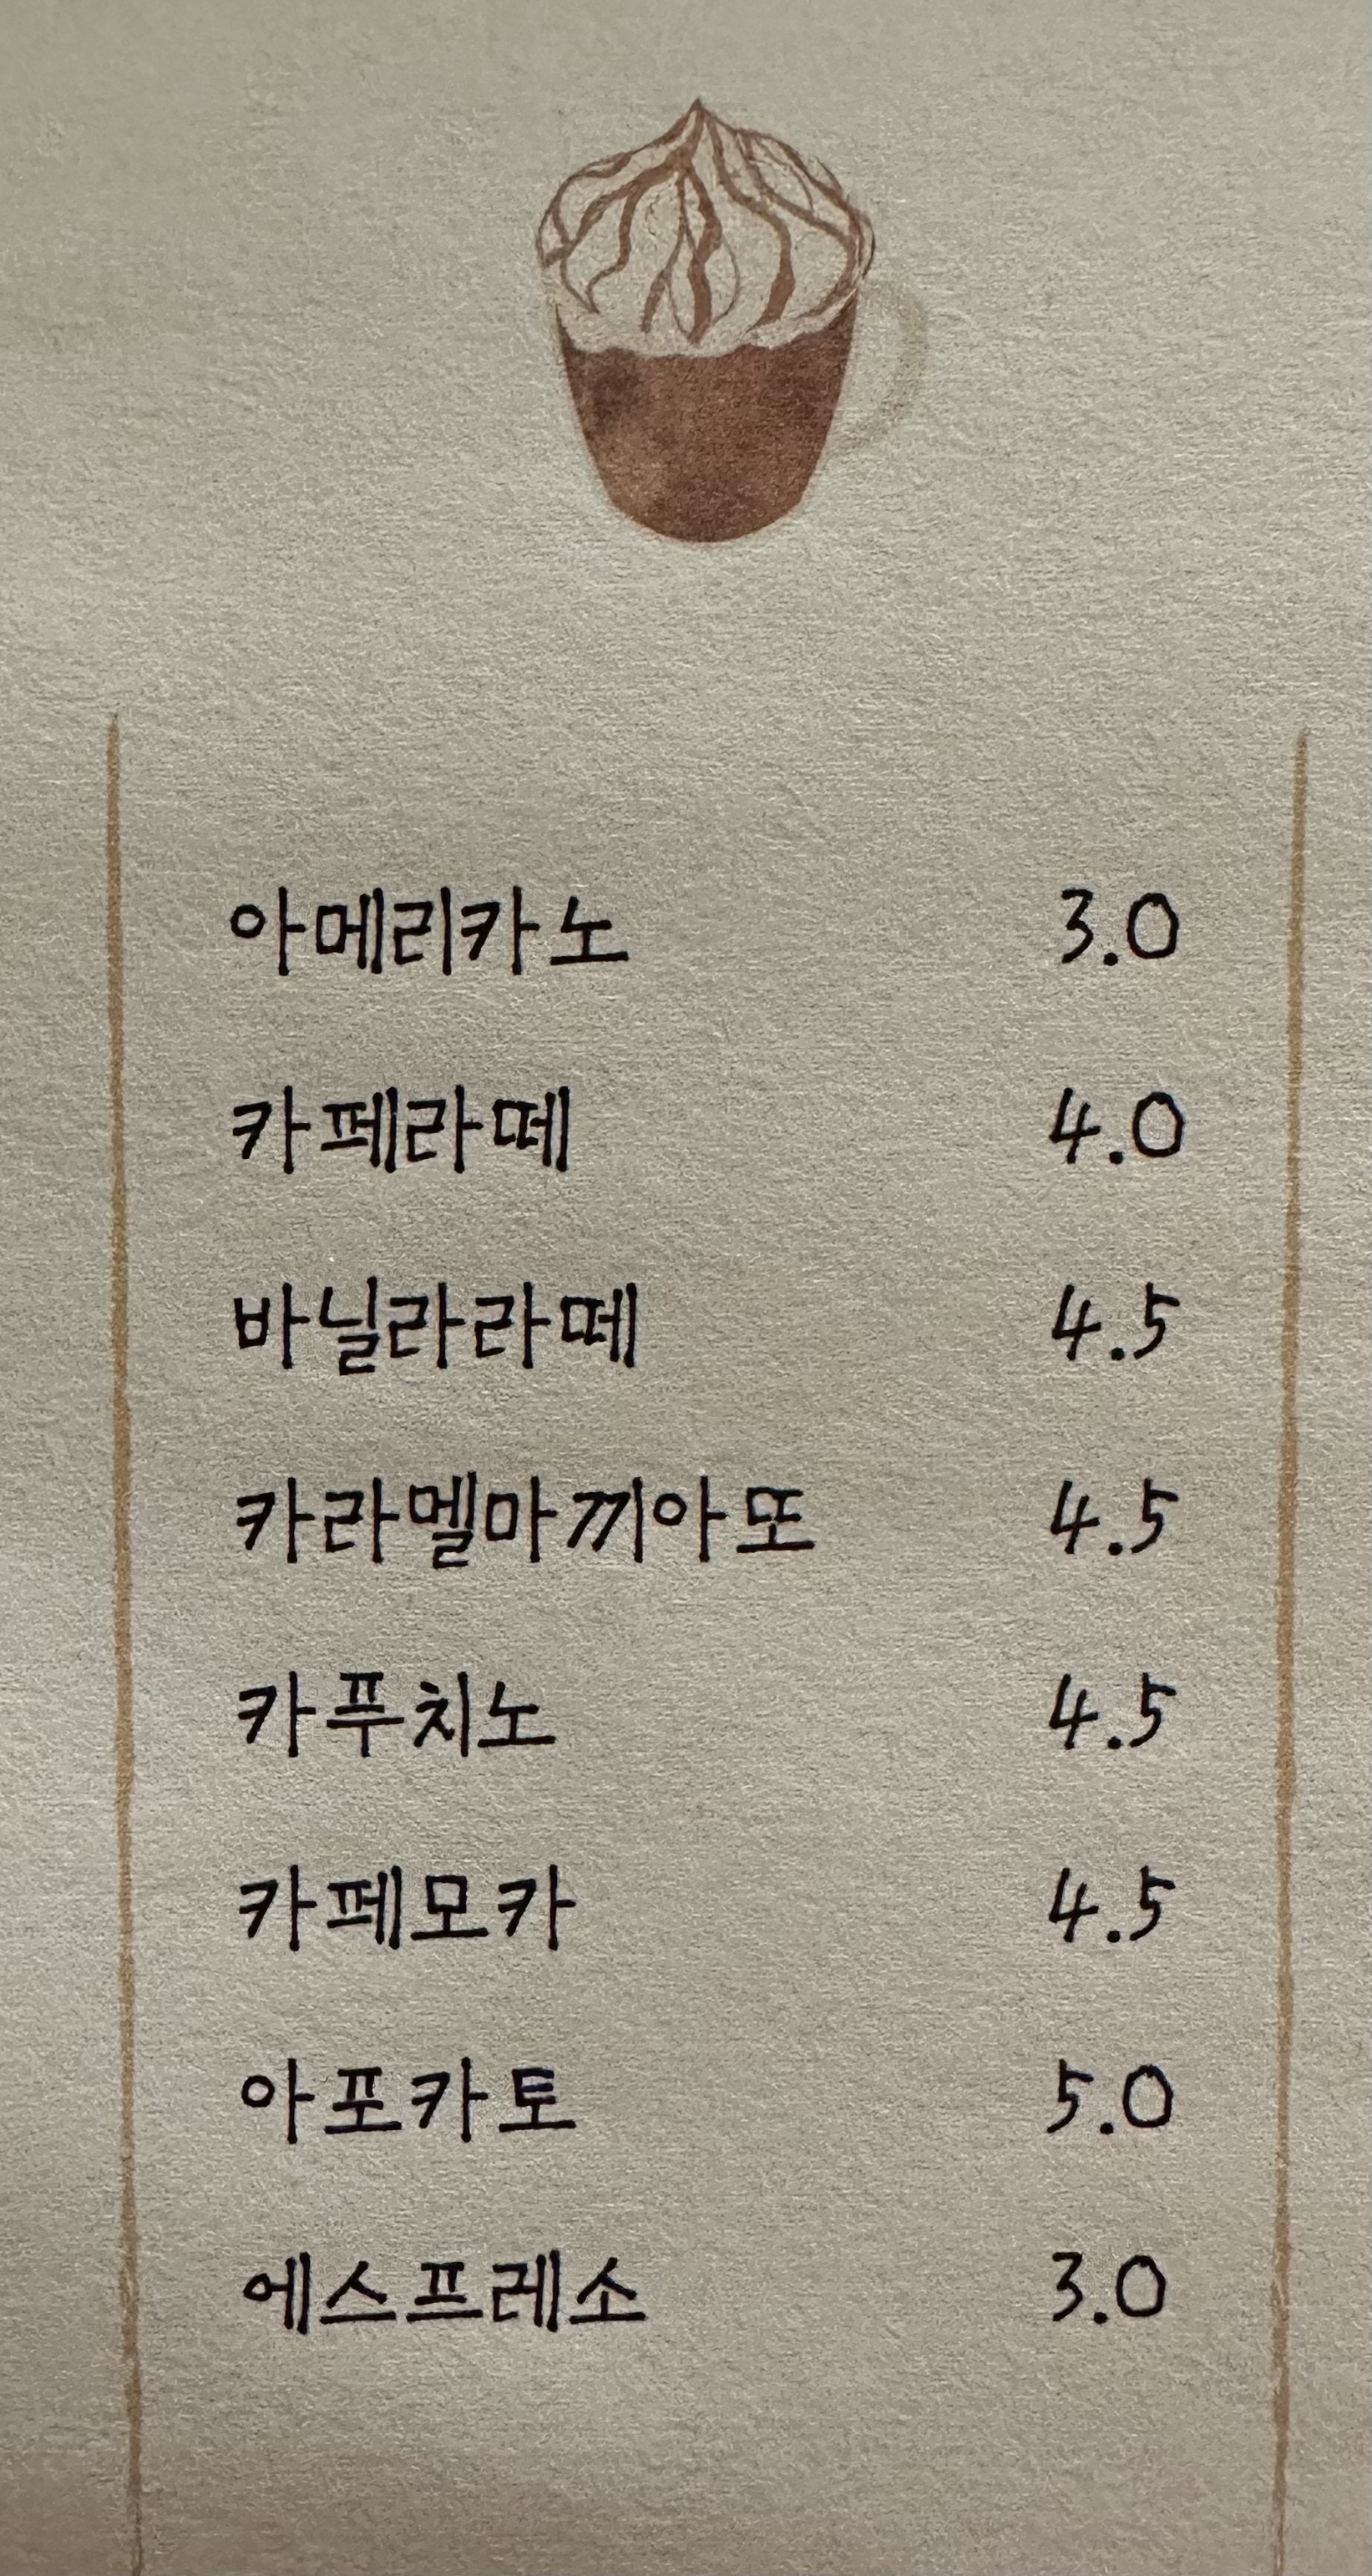 아메리카노 3.0
카페라떼 4.0
바닐라라떼 4.5
카라멜마끼아또 4.5
카푸치노 4.5
카페모카 4.5
아포카토 5.0
에스프레소 3.0